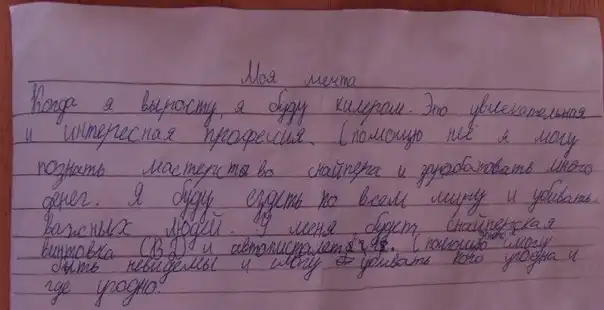 Моя мечта
Когда я вырасту, я буду килером. Это увлекательная
и интересная професия. С помощю неё я могу
познать мастерство снайпера и зарабатовать много
денег. Я буду ездеть по всем миру и убивать
важных людей. У меня будет снайперская
винтовка и автопистолет. С помощю могу
быть невидемы и смогу убивать кого угодно и
где угодно.